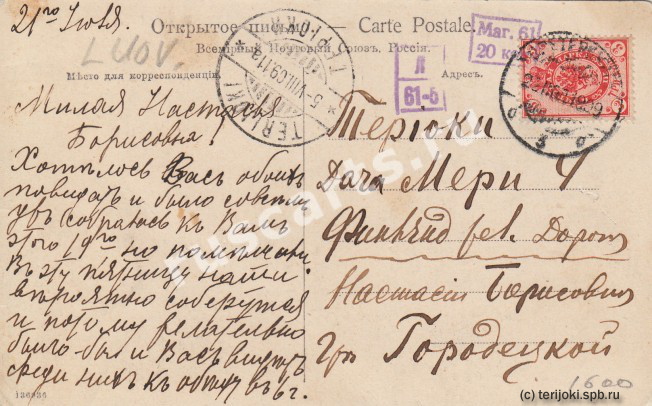 21го Июля
Открытое письмо. — Carte Postale.
Всемірный Почтовый Союз. Россія.
Мѣсто для корреспонденціи.
Адресъ.
LUOV.
Маг. 61
20 к
Л
61-б
TERIJOKI
5.VIII.09
ТЕРІОКИ
Милая Настасья
Борисовна!
Хотѣлось Васъ обоихъ
повидать и было совсѣмъ
ужъ собралась къ Вамъ
этого 19го но
Въ эту пятницу наши
вѣроятно соберутся
и потому желательно
было-бы и Васъ видѣть
среди нихъ къ обѣду въ 6 г.
136936
Теріоки
Дача Мери 4
Финлянд. жел. Дорога
Настасіи Борисовнѣ
Гж Городецкой
1600
ruscards.ru
(c) terijoki.spb.ru